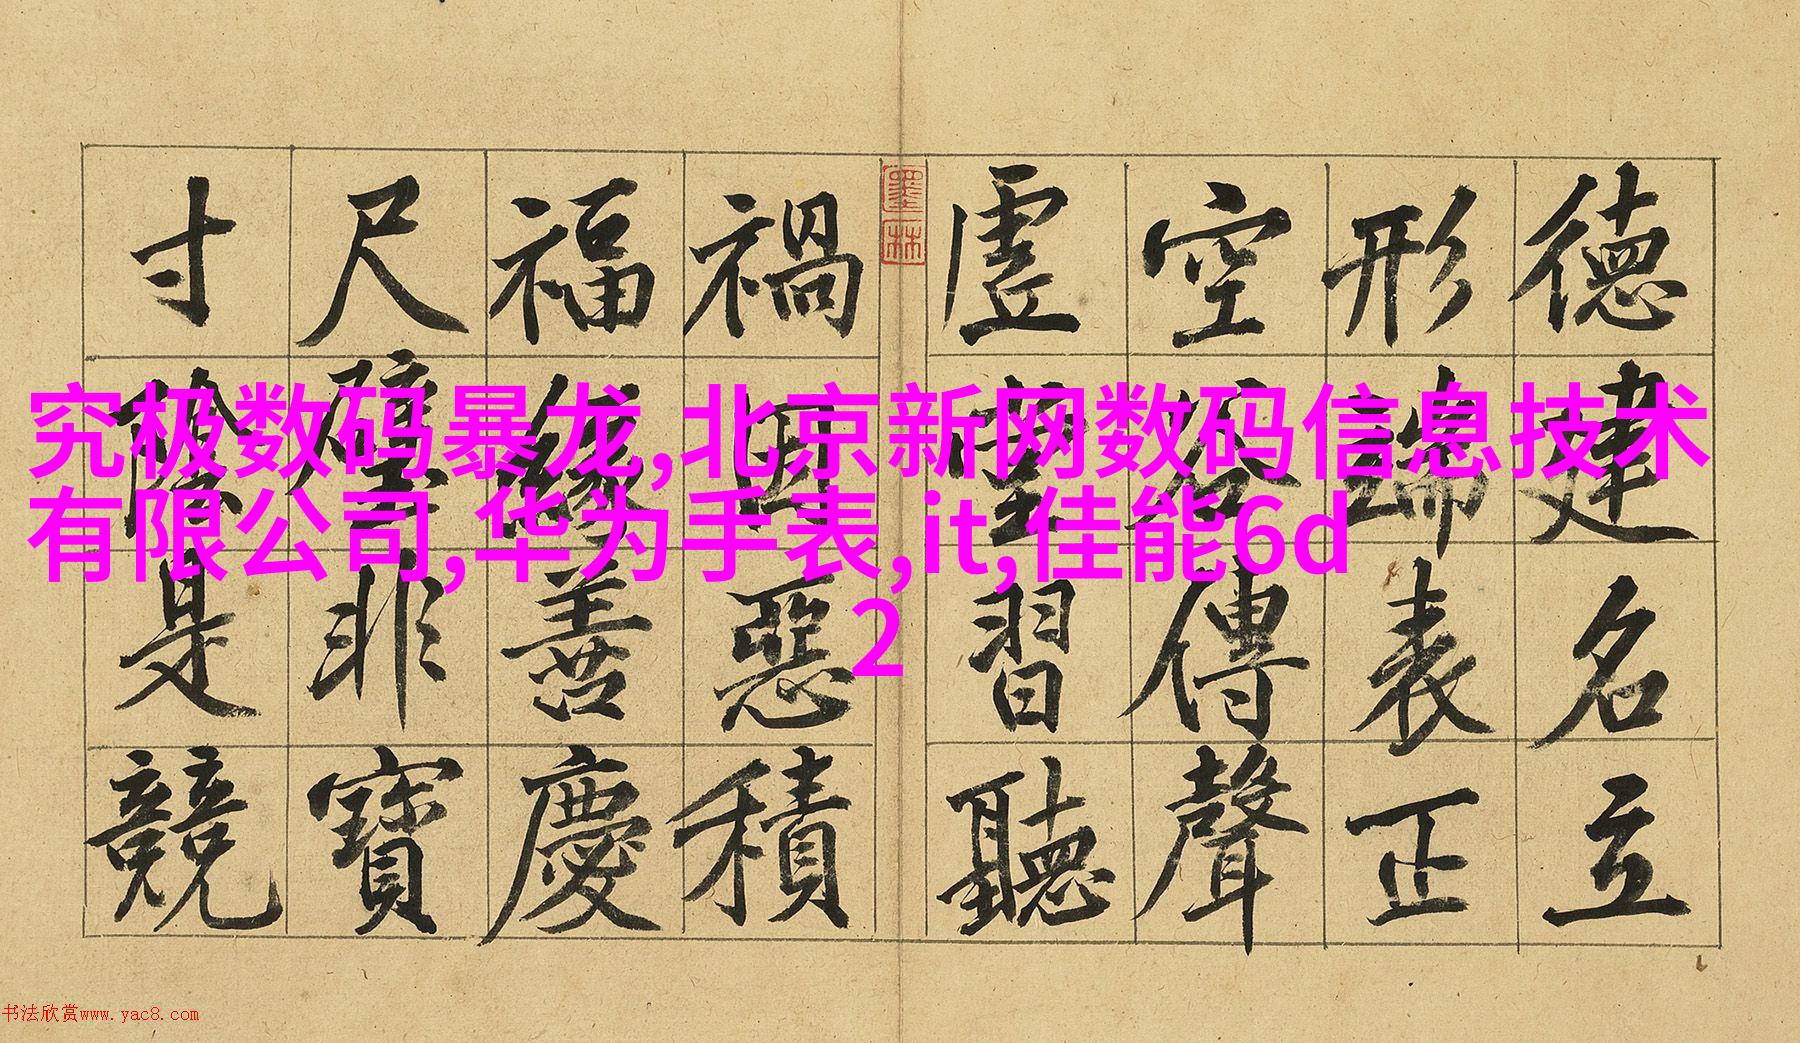 德建名立
形端表正
空谷傳聲
虛堂習聽
禍因惡積
福緣善慶
尺璧非寶
寸陰是競
墨林
究极数码暴龙,北京新网数码信息技术
有限公司,华为手表,it,佳能6d
2
书法欣赏www.yac8.com